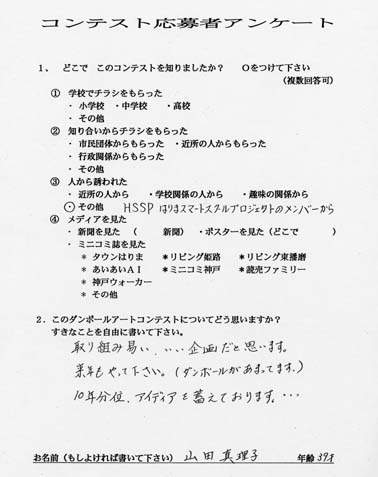 コンテスト応募者アンケート
1、 どこで このコンテストを知りましたか？ Oをつけて下さい
（複数回答可）
① 学校でチラシをもらった
・小学校 ・中学校 ・高校
・その他
② 知り合いからチラシをもらった
・市民団体からもらった ・近所の人からもらった
・行政関係からもらった
・その他
③ 人から誘われた
・近所の人から ・学校関係の人から ・趣味の関係から
・その他 HSSP はりまスマートスクールプロジェクトのメンバーから
④ メディアを見た
・新聞を見た （ 新聞） ・ポスターを見た（どこで ）
・ミニコミ誌を見た
＊ タウンはりま ＊リビング姫路 ＊リビング東播磨
＊ あいあいＡＩ ＊ミニコミ神戸 ＊読売ファミリー
＊ 神戸ウォーカー
＊ その他
2．このダンボールアートコンテストについてどう思いますか？
すきなことを自由に書いて下さい。
取り組み易い、いい企画だと思います。
来年もやって下さい。（ダンボールがあまってます。）
10年分位、アイディアを蓄えております。…
お名前（もしよければ書いて下さい） 山田 真理子 年齢 39才